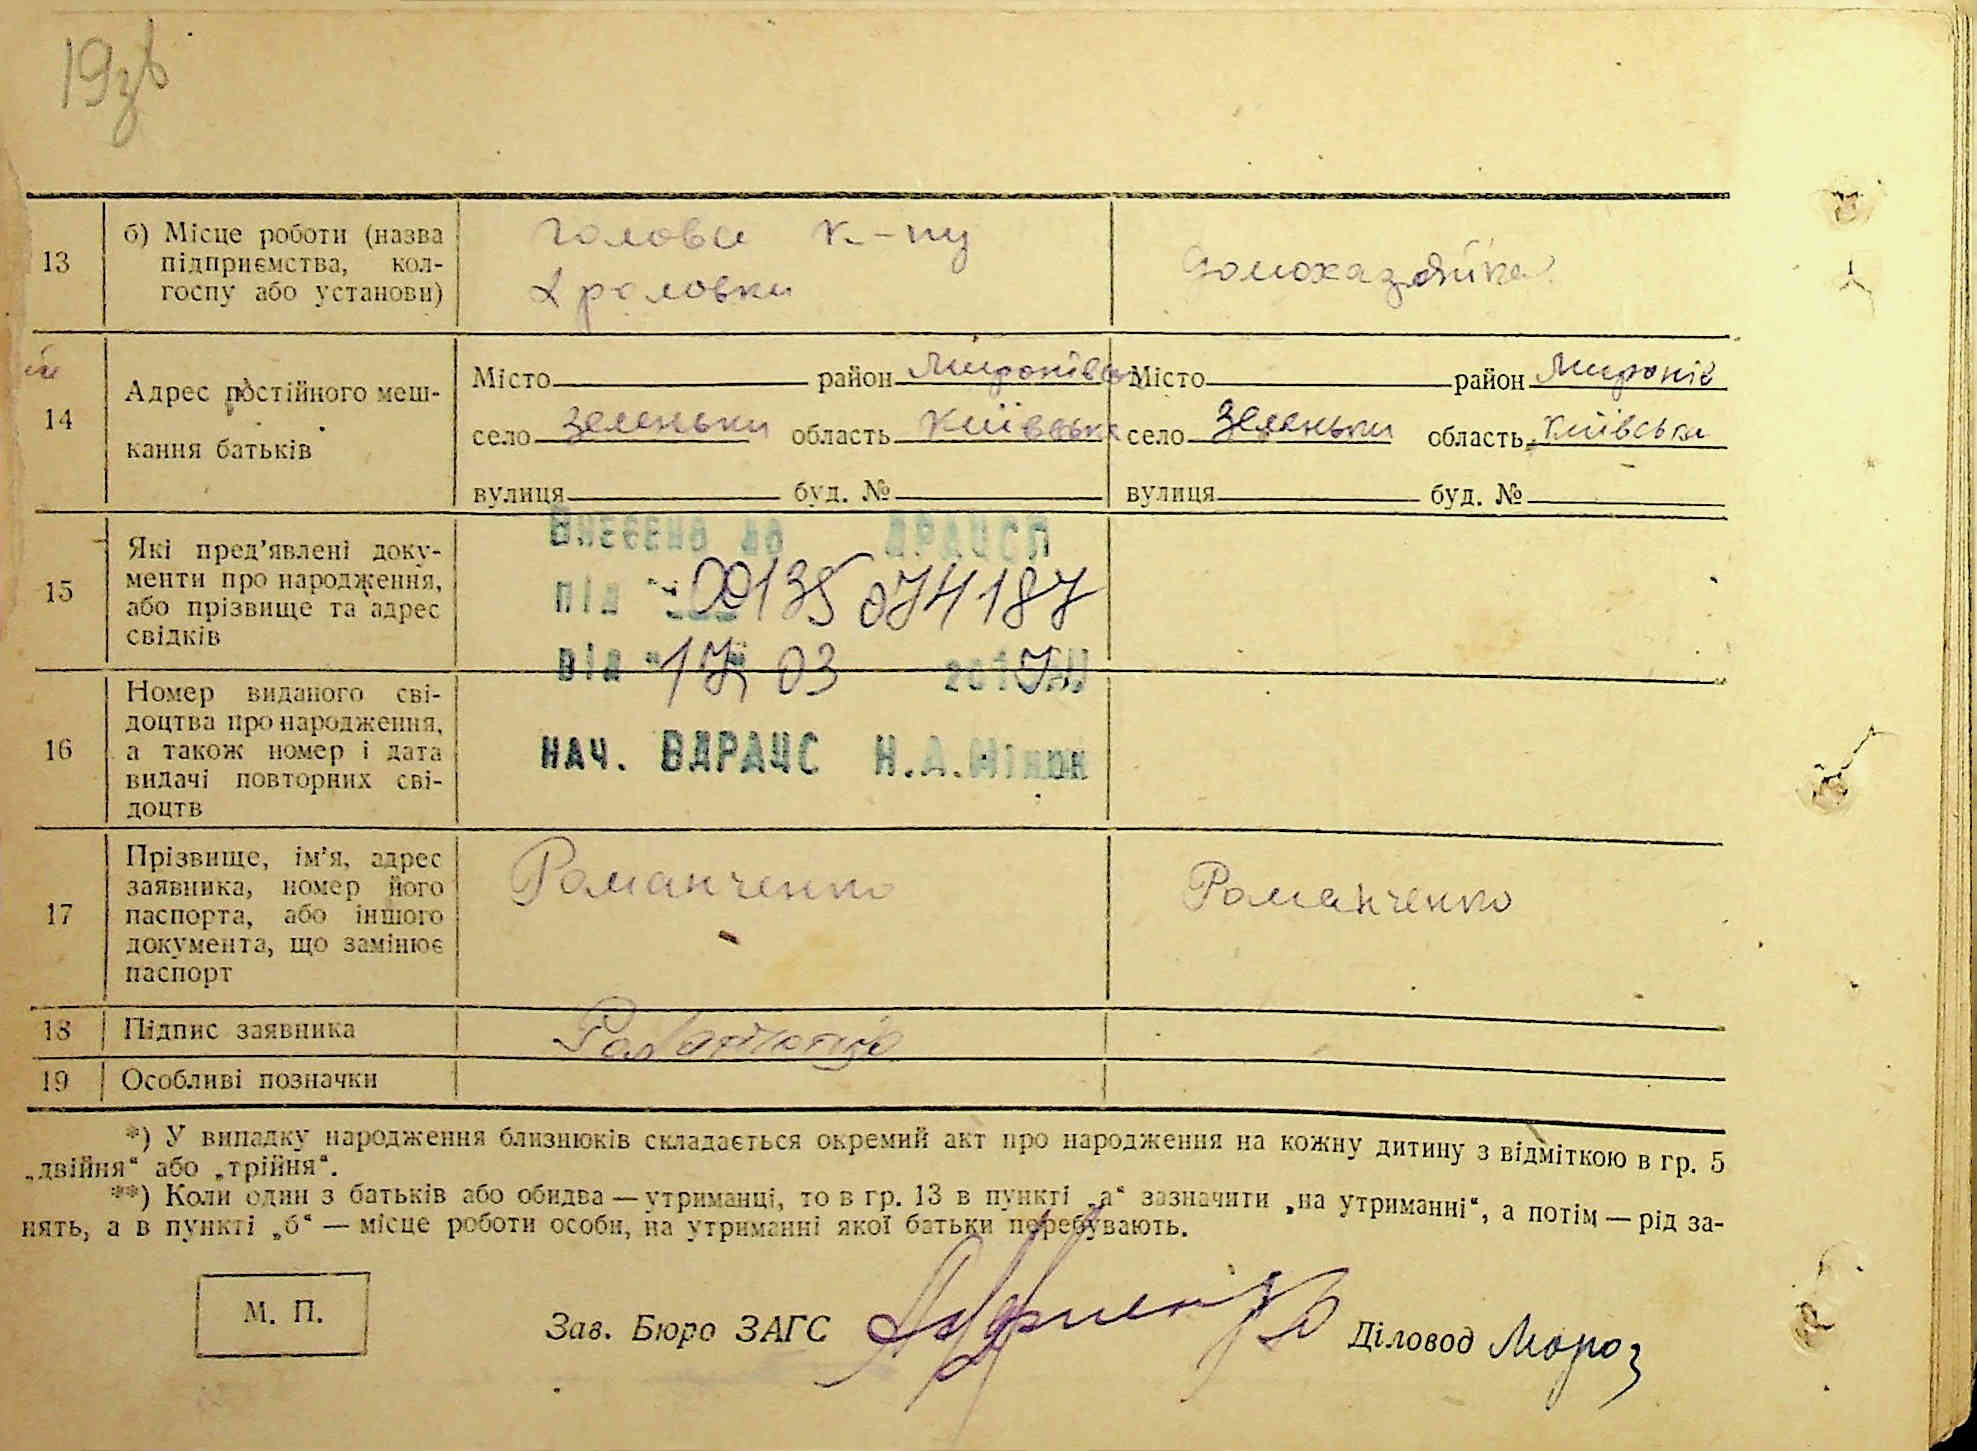 19зв
13 б) Місце роботи (назва підприємства, кол-госпу або установи)
Голова к.-пу
домохазяйка
14 Адрес постійного меш-кання батьків
Місто район Миронівськ Місто район Миронів
село Зеленьки область Київська село Зеленьки область Київська
вулиця буд. № вулиця буд. №
15 Які пред'явлені доку-
менти про народження,
або прізвище та адрес
свідків
Внесено до ДРАЦСП
під 00135074187
від "17" 03 2017
16 Номер виданого сві-
доцтва про народження,
а також номер і дата
видачі повторних сві-
доцтв
НАЧ. ВДРАЦС Н.А.
17 Прізвище, ім'я, адрес
заявника, номер його
паспорта, або іншого
документа, що замінює
паспорт
Романченко Романченко
18 Підпис заявника
19 Особливі позначки
*) У випадку народження близнюків складається окремий акт про народження на кожну дитину з відміткою в гр. 5
„двійня“ або „трійня“.
**) Коли один з батьків або обидва — утриманці, то в гр. 13 в пункті „а“ зазначити „на утриманні“, а потім — рід за-
нять, а в пункті „б“ — місце роботи особи, на утриманні якої батьки перебувають.
М. П.
Зав. Бюро ЗАГС Діловод Мороз